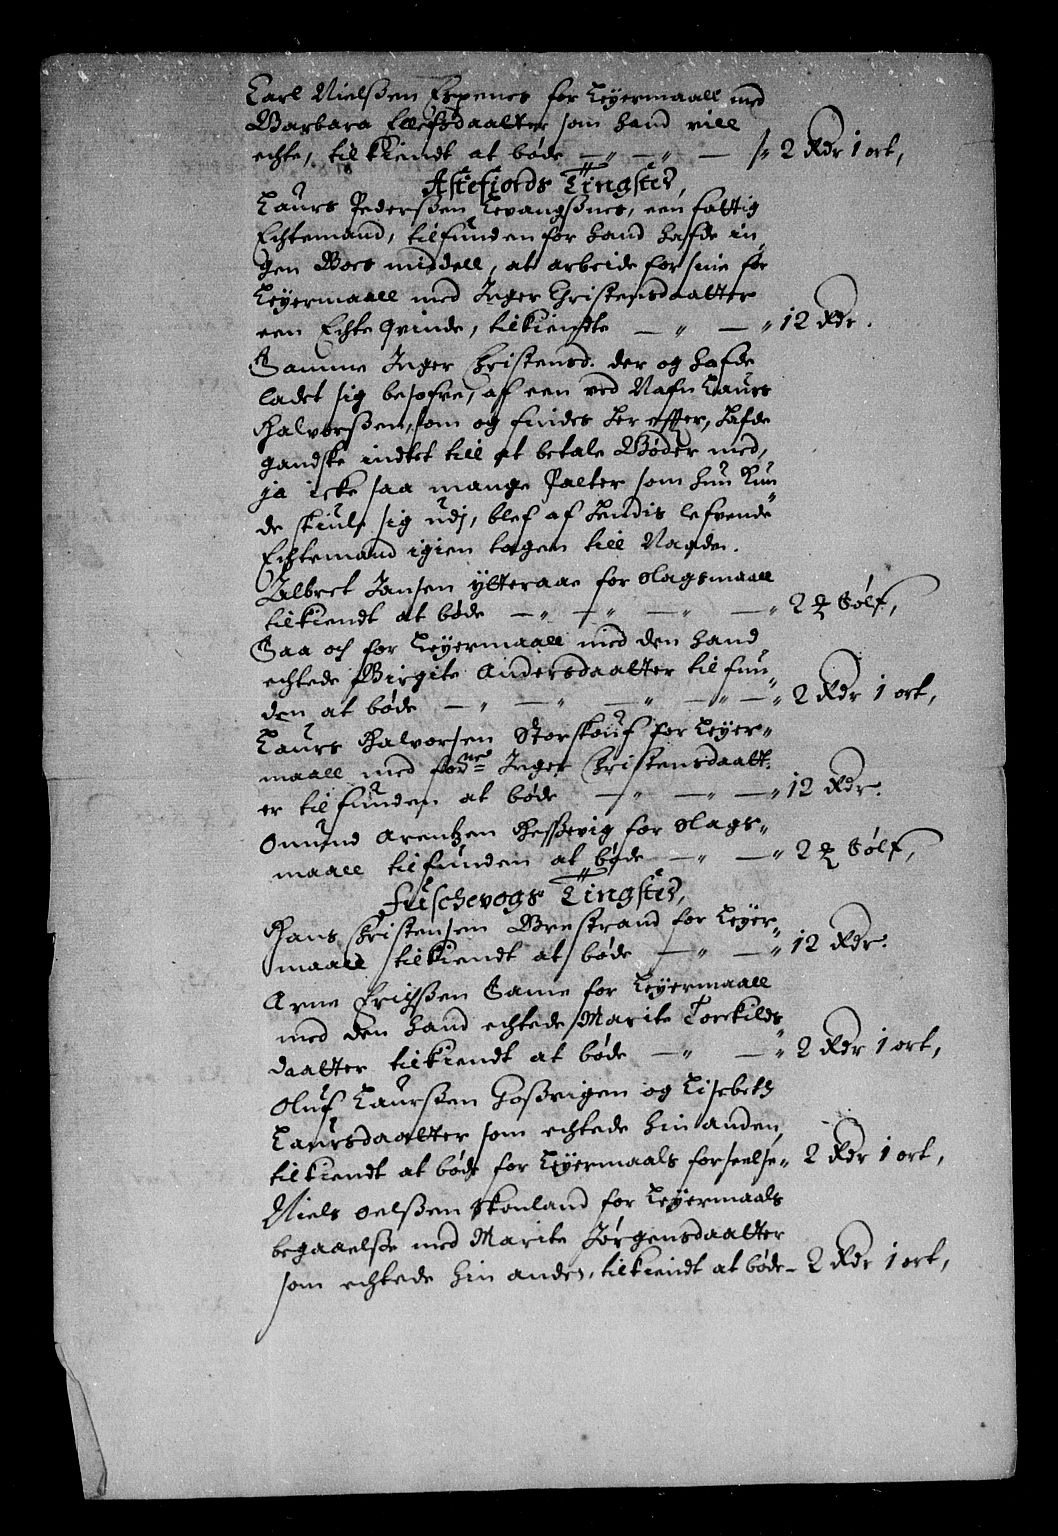 Carl Nielßen Espenes for Leyermaall med
Barbara Ellefsdaatter som hand vill
echte, tilkiendt at bøde — „ — „ — 2 Rdr 1 ort,
Astefiords Tingsted,
Laurs Pederßen Levangßnes, een fattig
Echtemand, tilfunden for hand hafde in„
gen Boes middell, at arbeide for sine for
Leyermaall med Inger Christensdaatter
een Echte Qvinde, tilkiendte — „ — „ 12 Rdr.
Samme Inger Christensd. der og hafde
ladet sig besofve, af een ved Nafn Laurs
Halvorßen, som og findes her effter, hafde
gandske indtet till at betale Bøder med,
ja icke saa mange Palter som hun kun„
de skiule sig udj, blef af hendis lefvende
Echtemand igien tagen till Naade.
Albret Jansen ytteraae for slagsmaall
tilkiendt at bøde — „ — „ — „ — „ 2 ℔ Sølf,
Saa och for Leyermaall med den hand
echtede Birgite Andersdaatter tilfun„
den at bøde — „ — „ — „ — „ — „ 2 Rdr 1 ort,
Laurs Halvorsen Storskouf for Leyer„
maall med forne Inger Christensdaatt„
er tilfunden at bøde — „ — „ — „ 12 Rdr.
Omund Arentzen Heßevig for slags„
maall tilfunden at bøde — „ — „ 2 ℔ Sølf,
Fuschevogs Tingsted,
Hans Christensen Brestrand for Leyer„
maall tilkiendt at bøde — „ — „ 12 Rdr.
Arne Erichßen Same for Leyermaall
med den hand echtede Marite Torckilds„
daatter tilkiendt at bøde — „ — „ 2 Rdr 1 ort,
Oluf Laurßen Goßvigen og Lisebeth
Laursdaatter som echtede hin anden,
tilkiendt at bøde for Leyermaals forseelse„ 2 Rdr 1 ort,
Niels Oelßen Skonland for Leyermaals
begaaelße med Marite Jørgensdaatter
som echtede hin anden, tilkiendt at bøde – 2 Rdr 1 ort,